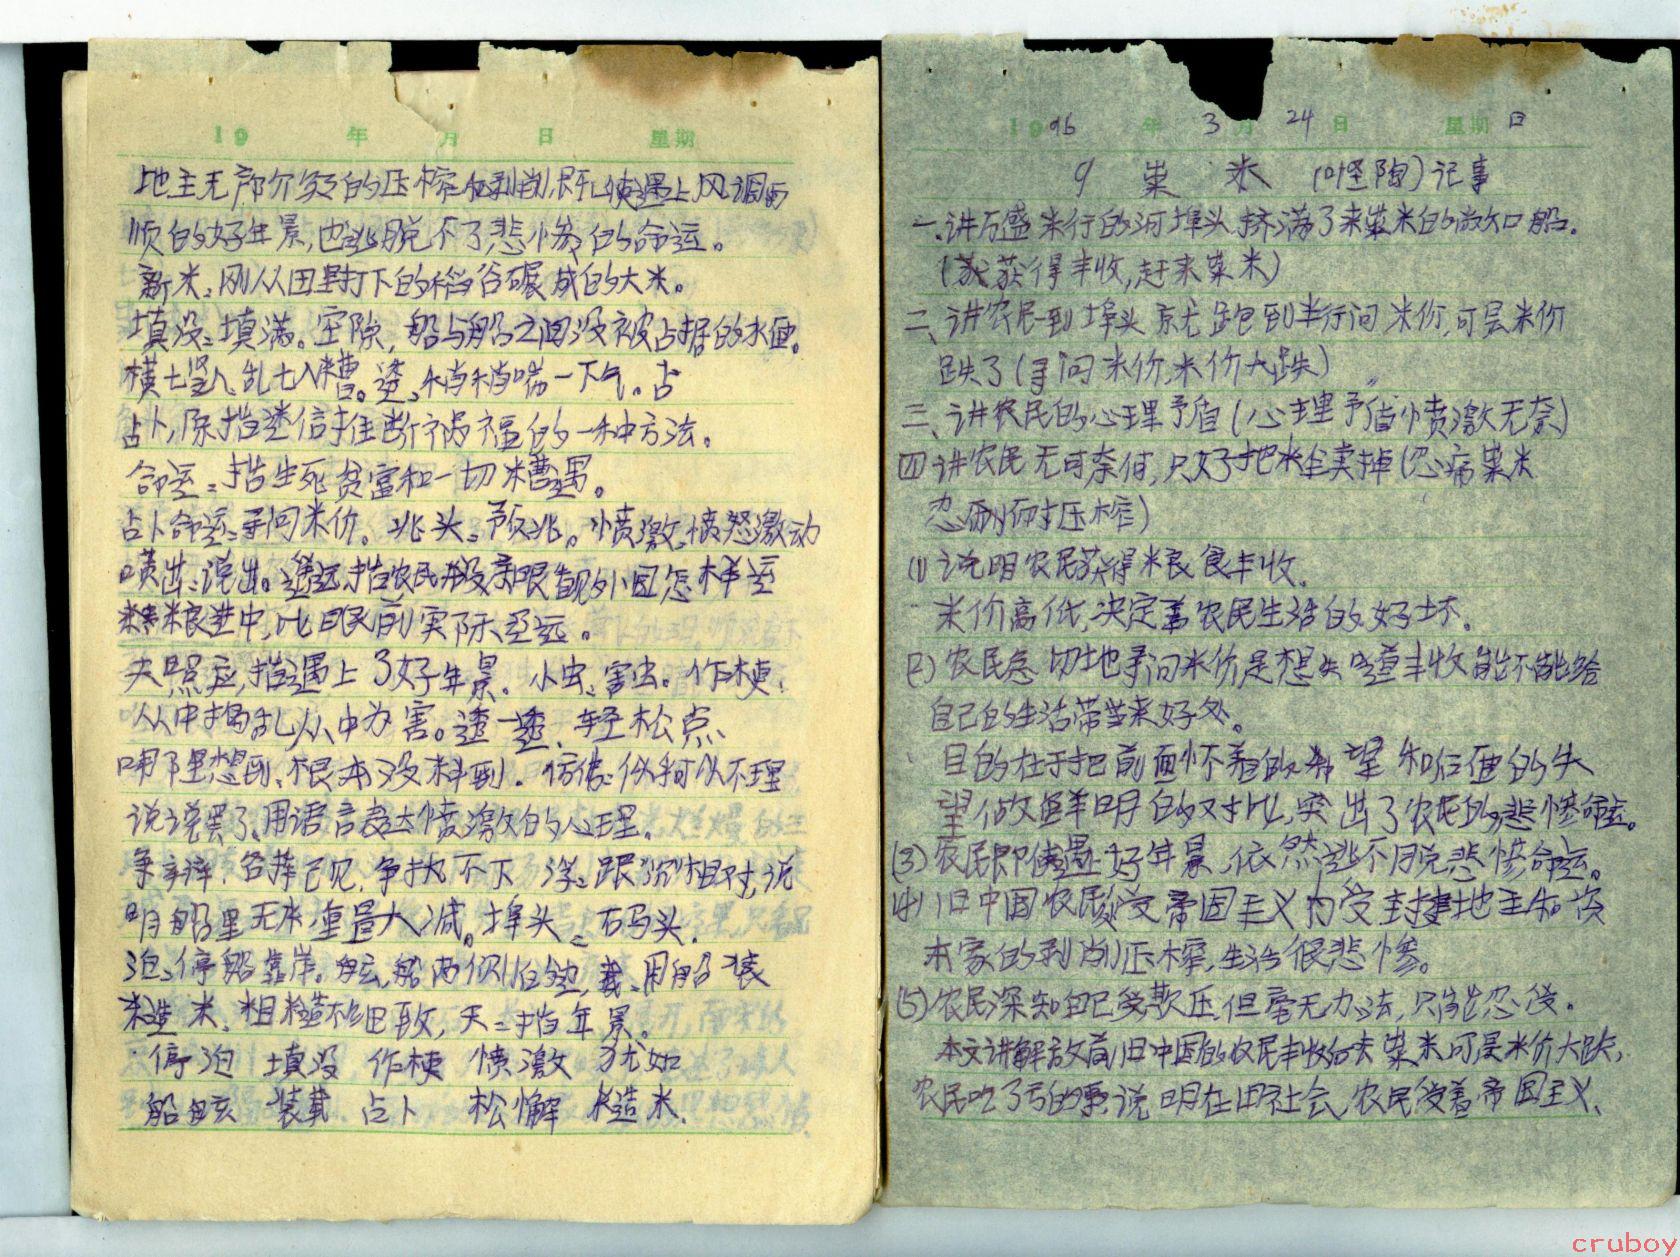 19 年 月 日 星期
地主无产阶级的压榨和剥削,即使遇上风调雨
顺的好年景,也逃脱不了悲惨的命运。
新米:刚从田里打下的稻谷碾成的大米。
填没:填满。空隙,船与船之间没被占据的水面。
横七竖八,乱七八糟。 稍稍喘一下气。占
占卜,原指迷信推断祸福的一种方法。
命运:指生死贫富和一切遭遇。
占卜命运:寻问米价。兆头:预兆。愤激,愤怒激动
喷出:说出。遥远,指农民没亲眼看见外国怎样运
粮进中,比眼前实际还远。
天照应,指遇上了好年景。小虫:害虫。作梗:
从中捣乱从中为害。透一透、轻松点、
哪里想到、根本没料到.仿佛:似 可以不理
说说罢了、用语言表达愤激的心理。
争辩:各择己见,争执不下 浅:跟“沉”相对,说
明船里无米重量大减。埠头:石码头.
泊、停船靠岸。舷,船两侧的边,载、用船装
糙米、粗糙不细致,天:指年景。
停泊 填没 作梗 愤激 犹如
船舷 装载 占卜 松懈 糙米.
1996 年 3 月 24 日 星期日
9 粜 米 (叶圣陶)记事
一.讲万盛米行的河埠头,挤满了来粜米的敞口船.
(获得丰收,赶来粜米)
二、讲农民一到埠头就跑到米行问米价,可是米价
跌了(寻问米价,米价大跌)
三、讲农民的心理矛盾(心理矛盾愤激无奈)
四讲农民无可奈何,只好把米全卖掉(忍痛粜米
忍 压榨)
(1)说明农民获得粮食丰收.
米价高低,决定着农民生活的好坏.
(2)农民急切地寻问米价是想 丰收能不能给
自己的生活带来好处。
目的在于把前面怀着的希望和后面的失
望做鲜明的对比,突出了农民的悲惨命运。
(3)农民即使遇上好年景,依然逃不脱悲惨命运。
(4)旧中国农民受帝国主义内受封建地主和资
本家的剥削压榨,生活很悲惨。
(5)农民深知自己受欺压,但毫无办法,只能忍受.
本文讲解放前旧中国的农民丰收后去粜米可是米价大跌,
农民吃了亏的事,说明在旧社会,农民受着帝国主义、
cruboy